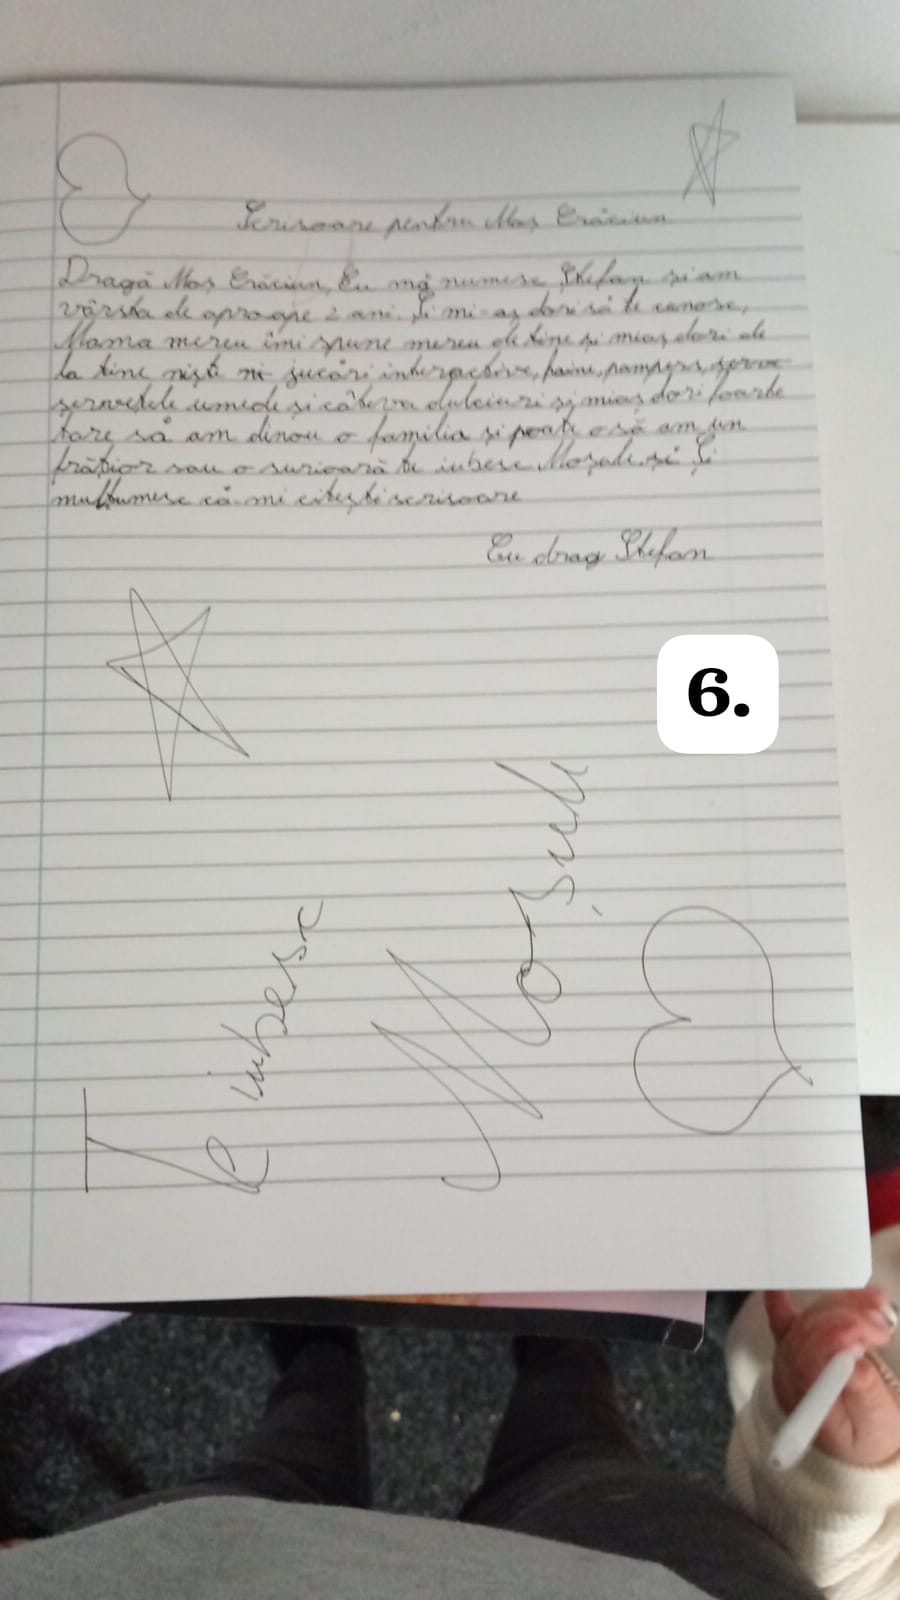 Scrisoare pentru Moș Crăciun
Dragă Moș Crăciun, Eu mă numesc Ștefan și am
vârsta de aproape 2 ani. Și mi-aș dori să te cunosc,
Mama mereu îmi spune mereu de tine și mi aș dori de
la tine niște jucări interactive, haine, pampers, serve
servetele umede și câteva dulciuri și mi aș dori foarte
tare să am dinou o familia și poate o să am un
frățior sau o surioară te iubesc Moșule. și Și
mulțumesc că mi citești scrisoare
Cu drag Ștefan
6.
Te iubesc
Moșule